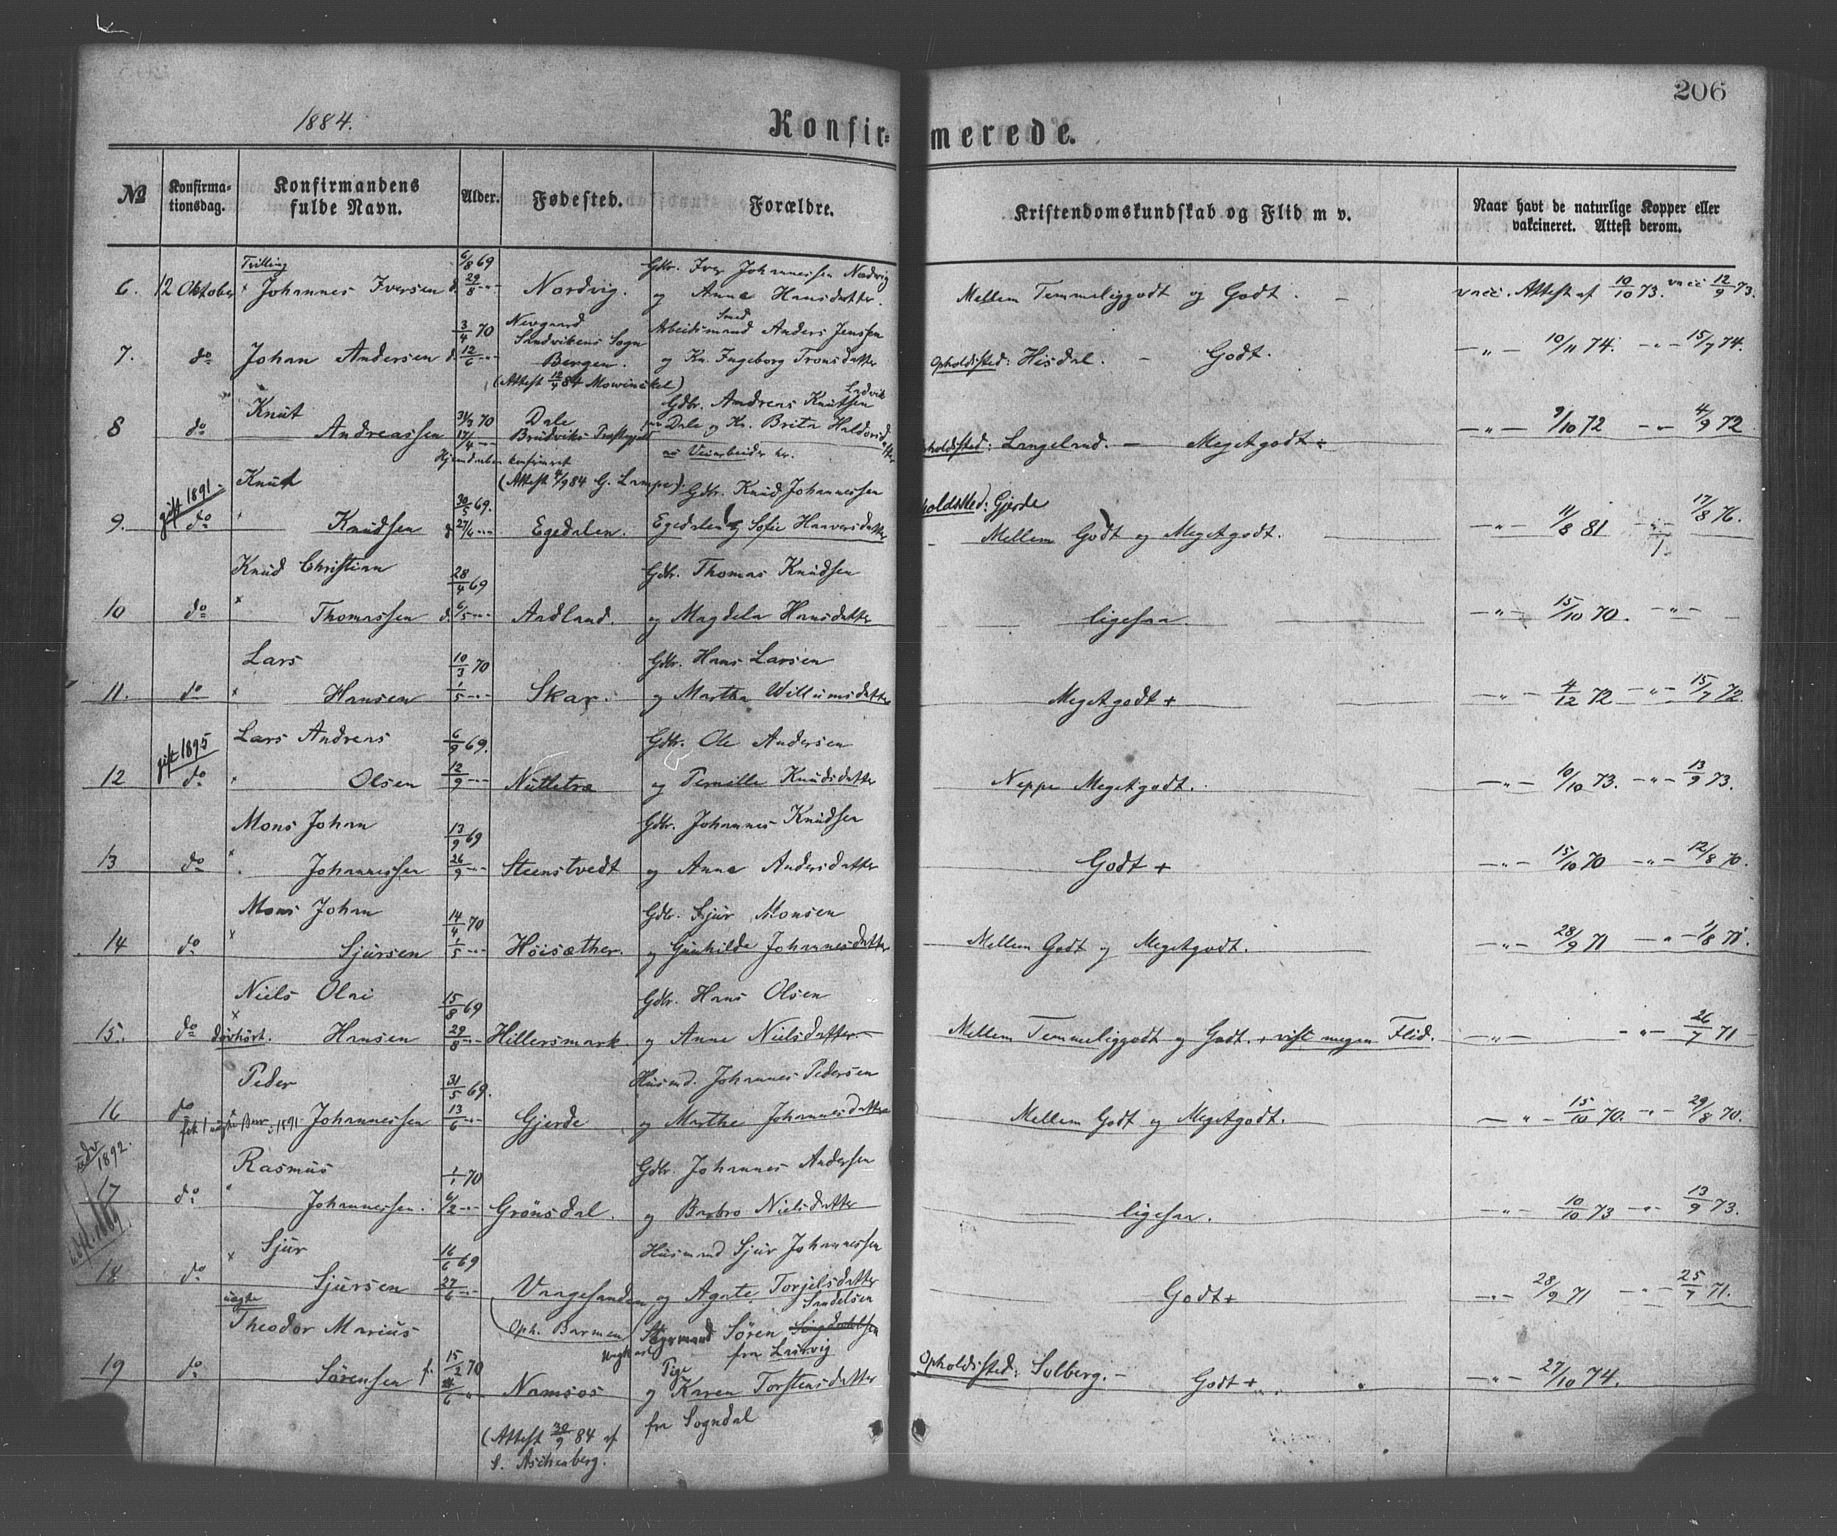 206
1884.
Konfir=merede.
No Konfirma-tionsdag. Konfirmandens fulde Navn. Alder. Fødested. Forældre. Kristendomskundskab og Flid m v. Naar havt de naturlige Kopper eller vakcineret. Attest derom.
Tvilling 6/8 69 Gbr. Iver Johannessen Nordvig
6. 12 Oktober Johannes Iversen d. 29/8 Nordvig. og Anna Hansdatter. Mellem Temmeliggodt og Godt. vacc. Attest af 10/10 73. vacc 12/9 73.
3/4 70 Nevgaard Sandvikens Sogn Arbeidsmand Smed Anders Jenssen
7. do Johan Andersen d. 12/6 Bergen. og Kn. Ingeborg Tronsdatter Opholdssted: Hisdal. – Godt. 10/11 74. 15/7 74.
(Attest 12/9 84 Mowinckel)
Knut 31/3 70 Dale Gbr. Andreas Knutsen
8 do Andreassen 17/4 Brudviks Præstegjeld Dale og Kn. Brita Haldorsdatter Opholdssted: Langeland. – Megetgodt 9/10 72 4/9 72
Hjemdøben konfirmeret nu Veiarbeider her.
gift 1891. Knut 30/5 69. (Attest 4/9 84 G. Lampe). Gbr. Knud Johannessen Opholdssted: Gjerde
9. do Knudsen d 27/6 Egedalen. Egedalen og Sofie Haaversdatter Mellem Godt og Megetgodt. 11/8 81 17/8 76.
Knud Christian 28/4 69 Gbr. Thomas Knudsen
10 do Thomassen d. 6/5 Aadland. og Magdela Hansdatter ligesaa 15/10 70.
Lars 10/3 70 Gbr. Hans Larsen
11. do Hansen 1/5 Skar. og Martha Willumsdatter Megetgodt + 4/12 72 15/7 72.
gift 1895 Lars Andreas 6/9 69. Gbr. Ole Andersen
12 do Olsen 12/9 Nüttetræ og Pernille Knudsdatter Neppe Megetgodt. 10/10 73. 13/9 73.
Mons Johan 13/9 69 Gbr. Johannes Knudsen
13 do Johannessen 26/9 Steenstvedt og Anna Andersdatter Godt + 15/10 70 12/8 70.
Mons Johan 14/4 70 Gbr. Sjur Monsen
14 do Sjursen 1/5 Høisæther. og Gunhilde Johannesdatter Mellem Godt og Megetgodt. 28/9 71 1/8 71.
Niels Olai 15/8 69 Gbr. Hans Olsen
15. do døvhørt. Hansen 29/8 Hillersmark. og Anna Nielsdatter Mellem Temmeliggodt og Godt. + vist megen Flid. 26/7 71
Peder 31/5 69. Husmd. Johannes Pedersen
16 do fik 1 uægte Barn 1891 Johannessen 13/6 Gjerde og Marthe Johannesdatter Mellem Godt og Megetgodt. 15/10 70. 29/8 70.
udv 1892. Rasmus 1/1 70 Gbr. Johannes Andersen
17 do Johannessen. 6/2 Grønsdal. og Barbro Nielsdatter ligesaa. 10/10 73 13/9 73.
Sjur 16/6 69 Husmand Sjur Johannessen
18 do Sjursen 27/6 Vaagesanden og Agate Torjelsdatter Godt + 28/9 71 25/7 71.
uægte Theodor Marius Oph. Barmen Styrmand Søren Sandelsen fra Larvig
19 do Sørensen f. 15/2 70 Namsos Pige og Karen Torstensdatter Opholdssted: Solberg. – Godt + 27/10 74.
(Attest 30/9 84 af fra Sogndal
S. Aschenberg.